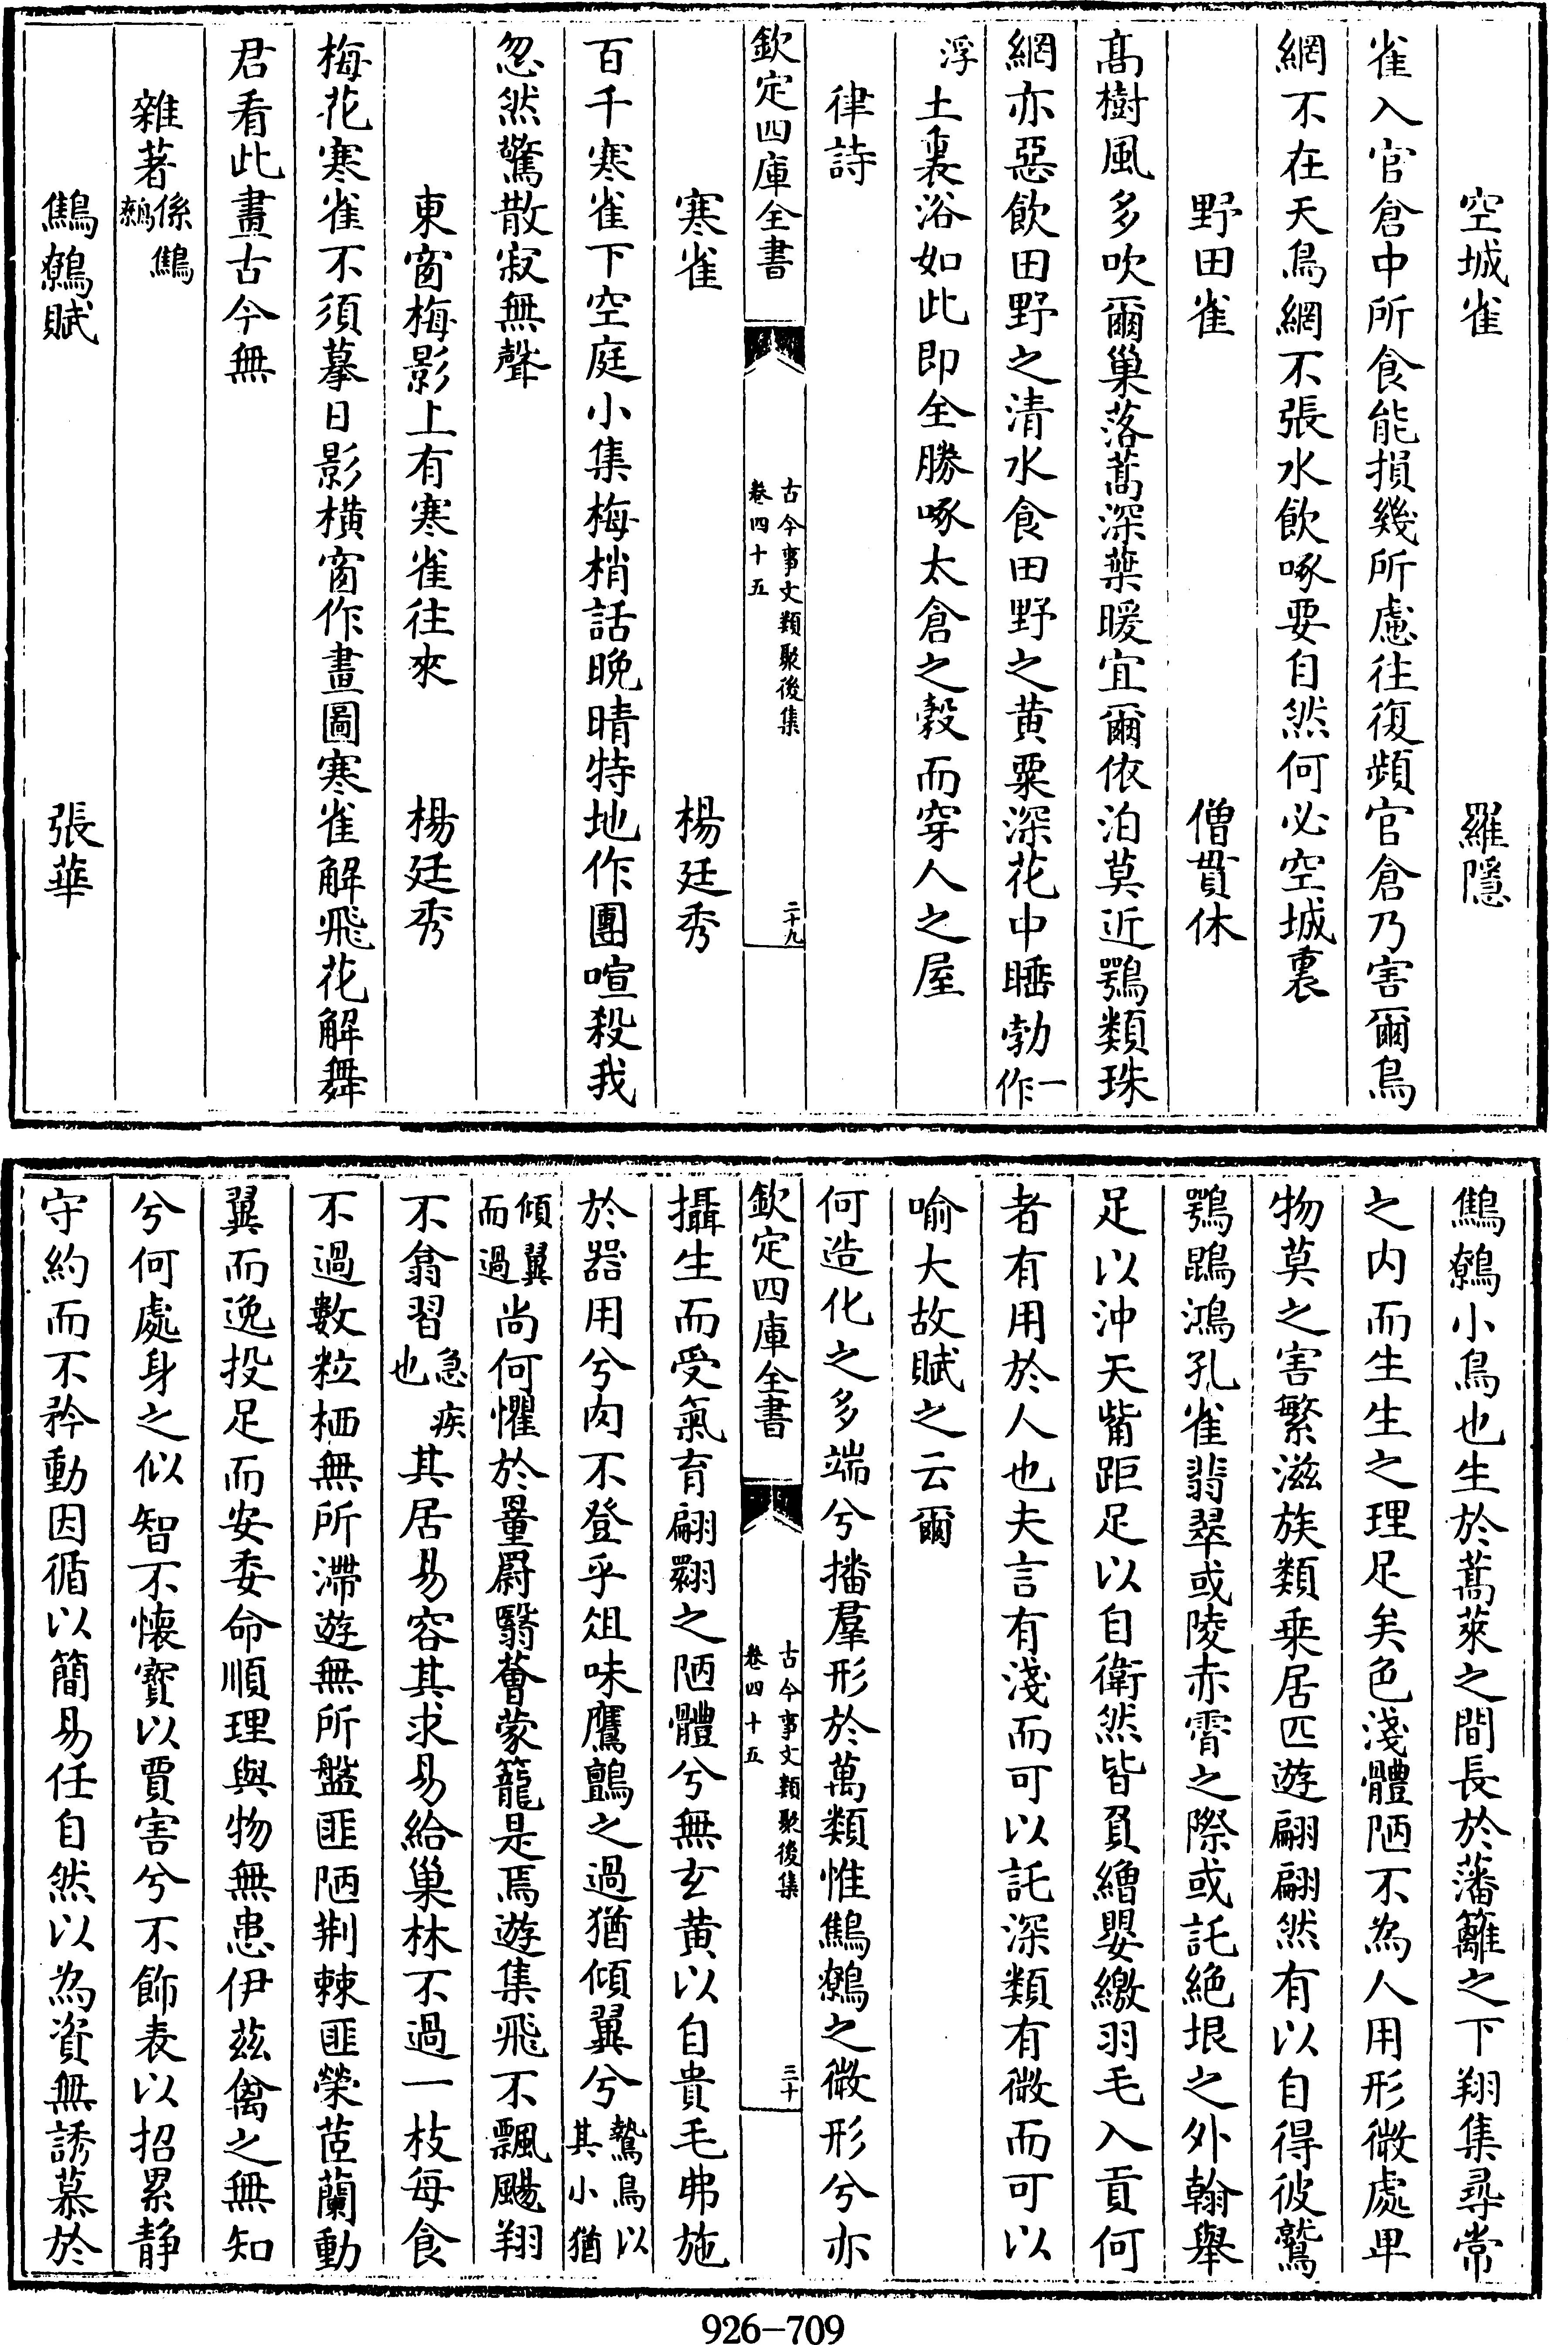 空城雀　羅隱
雀入官倉中所食能損幾所慮往復頻官倉乃害爾鳥
網不在天鳥網不張水飲啄要自然何必空城裏
野田雀　僧貫休
髙樹風多吹爾巢落蒿深葉暖宜爾依泊莫近鶚類珠
網亦惡飲田野之清水食田野之黄粟深花中睡勃一作
浮土裏浴如此即全勝啄太倉之穀而穿人之屋
律詩
欽定四庫全書　古今事文類聚後集卷四十五　二十九
寒雀　楊廷秀
百千寒雀下空庭小集梅梢話晚晴特地作團喧殺我
忽然驚散寂無聲
東窗梅影上有寒雀往來　楊廷秀
梅花寒雀不須摹日影横窗作畫圖寒雀解飛花解舞
君看此畫古今無
雜著係鷦鷯
鷦鷯賦　張華
鷦鷯小鳥也生於蒿萊之間長於藩籬之下翔集尋常
之内而生生之理足矣色淺體陋不為人用形微處卑
物莫之害繁滋族類乗居匹遊翩翩然有以自得彼鷲
鶚鵾鴻孔雀翡翠或陵赤霄之際或託絶垠之外翰舉
足以沖天觜距足以自衛然皆負繒嬰繳羽毛入貢何
者有用於人也夫言有淺而可以託深類有微而可以
喻大故賦之云爾
何造化之多端兮播羣形於萬類惟鷦鷯之微形兮亦
欽定四庫全書　古今事文類聚後集卷四十五　三十
攝生而受氣育翩翾之陋體兮無玄黄以自貴毛弗施
於器用兮肉不登乎俎味鷹鸇之過猶傾翼兮鷙鳥以其小猶
傾翼而過尚何懼於罿罻翳薈蒙籠是焉遊集飛不飄颺翔
不翕習急疾也其居易容其求易給巢林不過一枝每食
不過數粒栖無所滯遊無所盤匪陋荆棘匪榮茝蘭動
翼而逸投足而安委命順理與物無患伊兹禽之無知
兮何處身之似智不懐寶以賈害兮不飾表以招累静
守約而不矜動因循以簡易任自然以為資無誘慕於
926-709